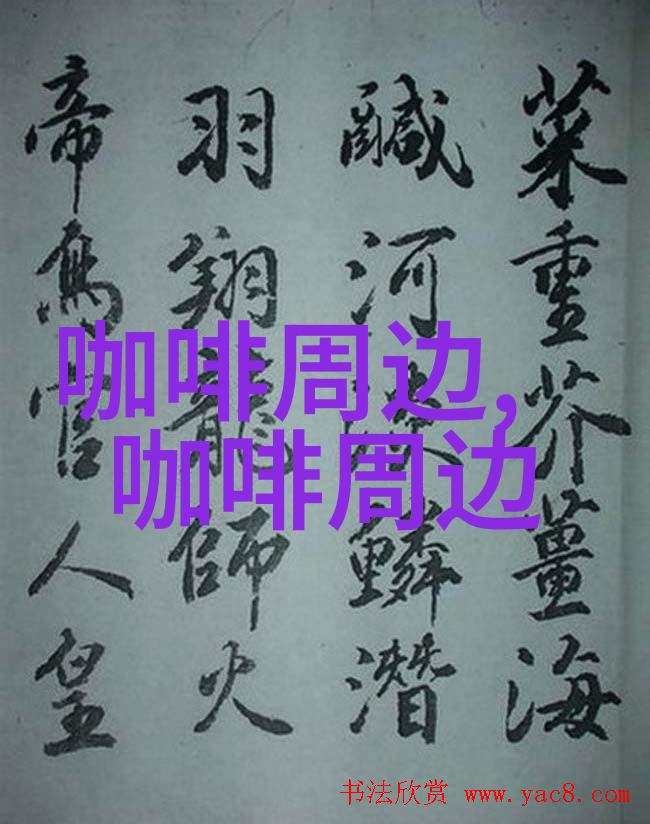 菜重芥薑海
鹹河淡鱗潛
羽翔龍師火
帝鳥官人皇
咖啡周边,
咖啡周边
书法欣赏 www.yac8.com